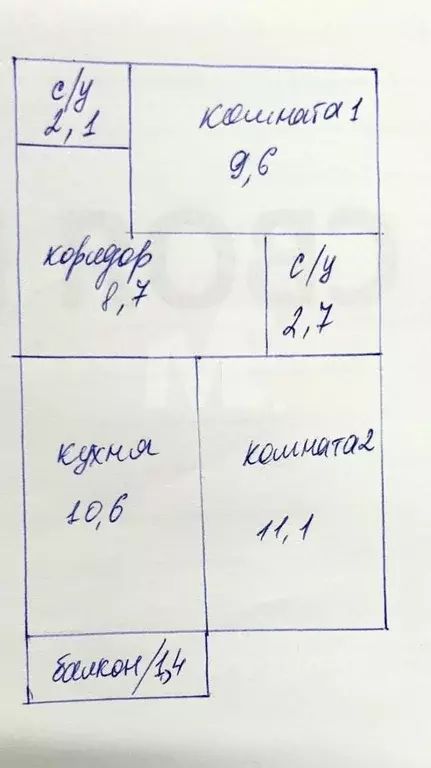 с/у
2,1
комната 1
9,6
коридор
8,7
с/у
2,7
кухня
10,6
комната 2
11,1
балкон/1,4